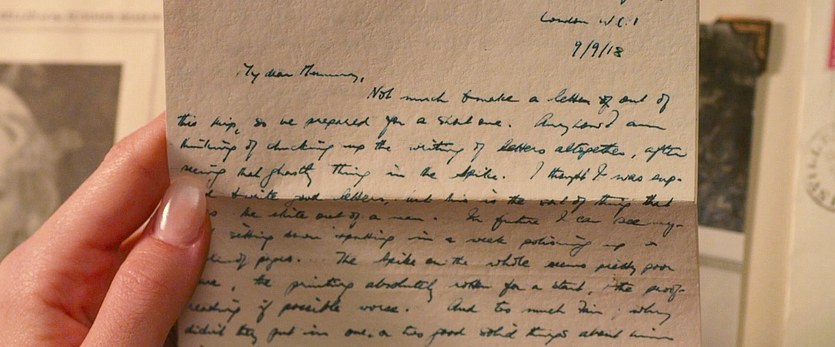 London W.C.1
9/9/18
My dear Mummy,
Not much to make a letter of out of
this trip, so be prepared for a short one. Anyhow I am
thinking of chucking up the writing of letters altogether, after
seeing that ghastly thing in the Spike. I thought I was sup-
to write good letters, but this is the sort of thing that
the out of a man. In future I can see my-
sitting down in a week polishing up a
of pages. The Spike on the whole seems pretty poor
, the printing absolutely rotten for a start, the proof-
reading if possible worse. And too much ; why
didn't they put in one or two good solid things about